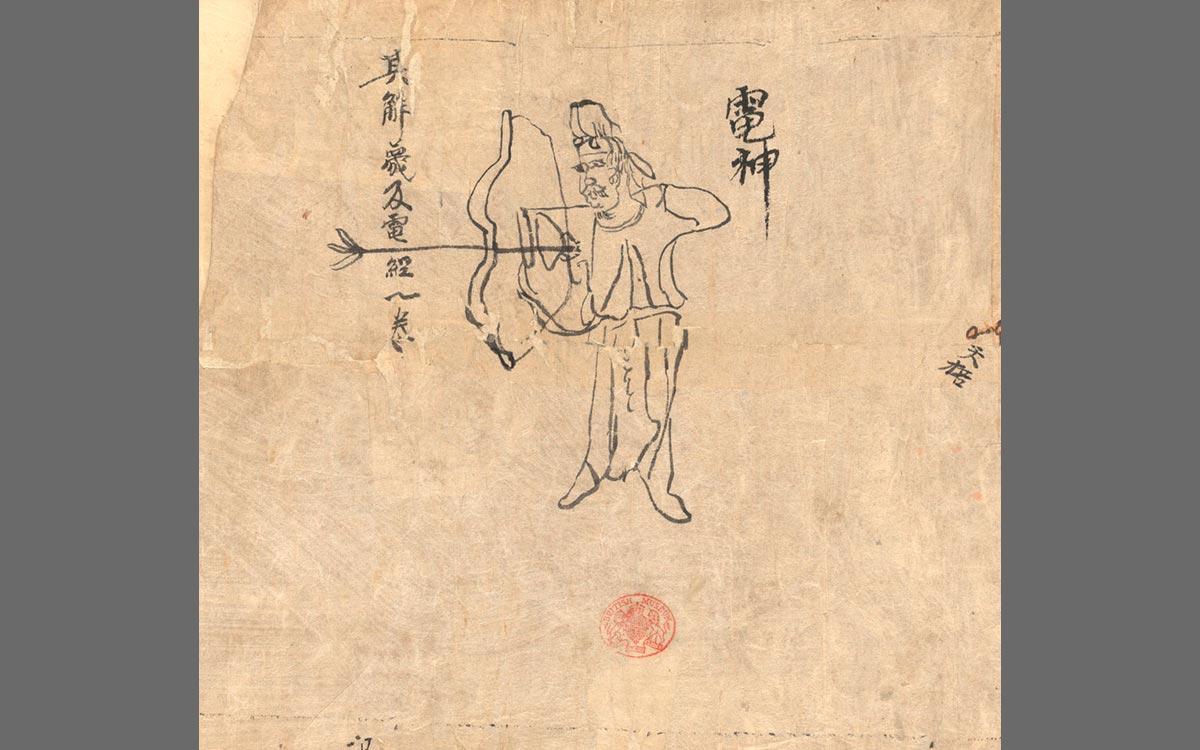 天棓
電神
其解夢及電經一卷
BRITISH MUSEUM